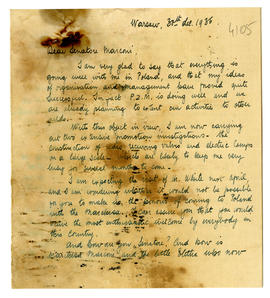 Warsaw, 30th dec. 1936
4105
Dear Senatore Marconi,
I am very glad to say that everything is
going well with me in Poland, and that my ideas
of organisation and management have proved quite
successful. In fact P.Z.M. is doing well and we
are already planning to extend our activities to other
fields.
With this object in view, I am now carrying
out two extensive investigations - the
construction of radio receiving valves and electric lamps
on a large scale. These are likely to keep me very
busy for several months to come.
I am expecting to be out of in while next april,
and I am wondering whether it would not be possible
for you to make the of coming to Poland
with the Marchesa. I can assure you that you would
receive the most enthusiastic welcome by everybody in
this Country.
And how are you, Senatore, and how is
Marchesa Marconi and the little Elettra who now